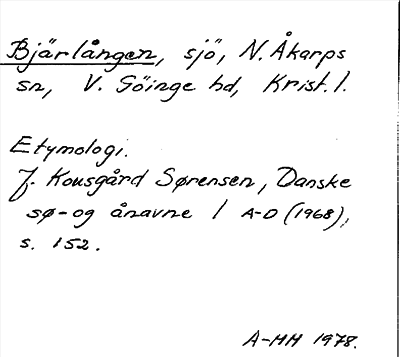 Bjärlången, sjö, N. Åkarps
sn, V. Göinge hd, Krist. l.
Etymologi.
J. Kousgård Sørensen, Danske
sø- og ånavne I A-D (1968),
s. 152.
A-HH 1978.